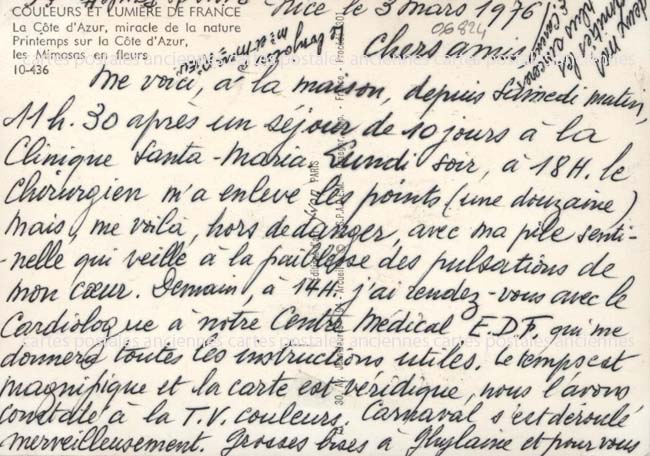 COULEURS ET LUMIÈRE DE FRANCE
La Côte d'Azur, miracle de la nature
Printemps sur la Côte d'Azur,
les Mimosas en fleurs
10-436
Nice le 3 mars 1976
06824
Chers amis,
Me voici, à la maison, depuis samedi matin,
11h.30 après un séjour de 10 jours à la
Clinique Santa-Maria. Lundi soir, à 18H. le
Chirurgien m'a enlevé les points (une douzaine)
mais, me voilà, hors de danger, avec ma pile senti-
-nelle qui veille à la faiblesse des pulsations de
mon cœur. Demain, à 14H. j'ai rendez-vous avec le
Cardiologue à notre Centre Médical E.D.F. qui me
donnera toutes les instructions utiles. Le temps est
magnifique et la carte est véridique, nous l'avons
constaté à la T.V. couleurs. Carnaval s'est déroulé
merveilleusement. Grosses bises à Ghylaine et pour vous
deux nos
amitiés les
plus sincères
cartes postales anciennes cartes postales anciennes
cartes postales anciennes cartes postales anciennes
PARIS